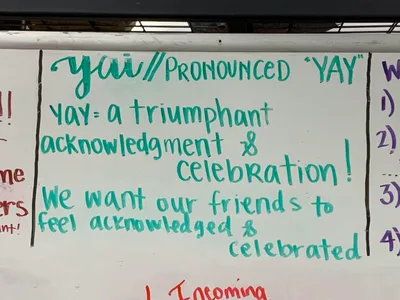 yai // PRONOUNCED "YAY"
yay = a triumphant
acknowledgment &
celebration!
We want our friends to
feel acknowledged &
celebrated
Incoming
W
1)
2)
...
3)
4)